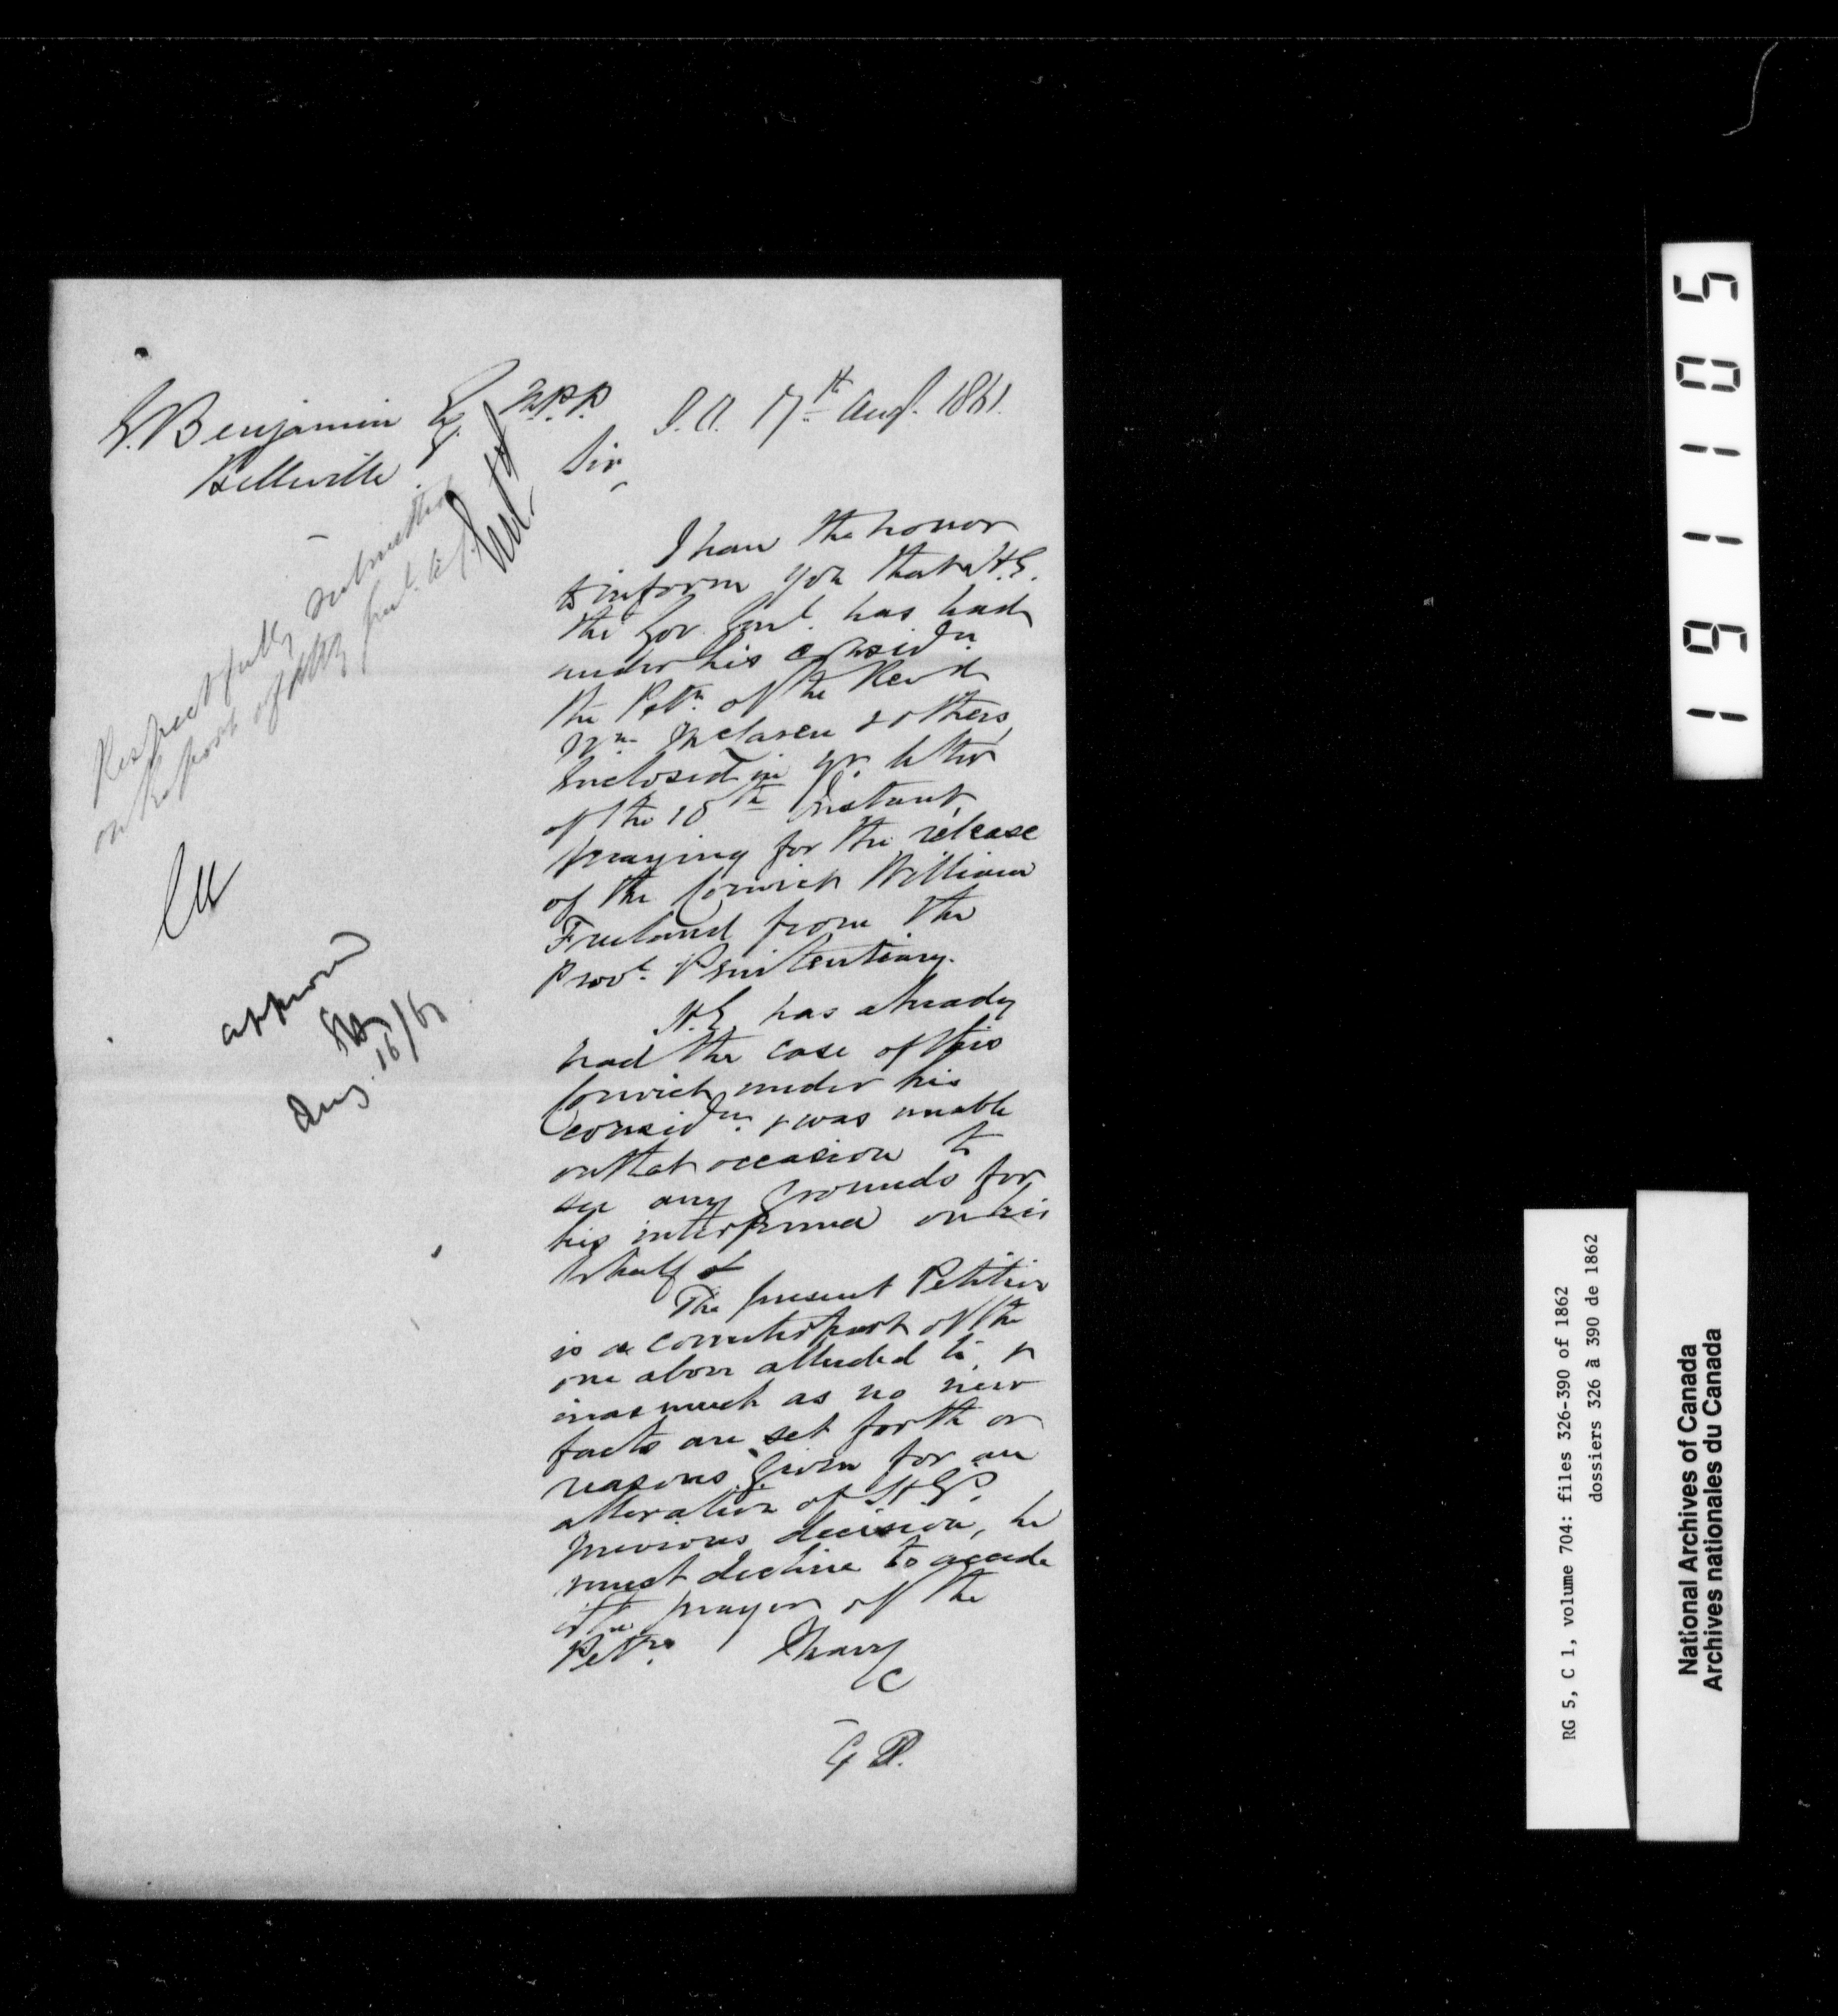 G. Benjamin Esq. M.P.P.
Belleville.
S.O. 17th Augt. 1861.
Sir,
I have the honor
to inform you that H.E.
the Gov. Genl. has had
under his considn.
the Petn. of the Revd
Wm. McLaren & others,
enclosed in yr. letter
of the 10th Instant,
praying for the release
of the Convict William
Freeland from the
Provl. Penitentiary.
H.E. has already
had the case of this
Convict under his
considn. & was unable
on that occasion to
see any grounds for
his interference on his
behalf &
The present Petition
is a counterpart of the
one above alluded to, &
inasmuch as no new
facts are set forth or
reasons given for an
alteration of H.E's.
previous decision, he
must decline to accede
to the prayer of the
Petrs.
I have
&c
Respectfully submitted
on Report of Atty Genl.
Approved
Aug. 16/61
191105
RG 5, C 1, volume 704: files 326-390 of 1862
dossiers 326 à 390 de 1862
National Archives of Canada
Archives nationales du Canada